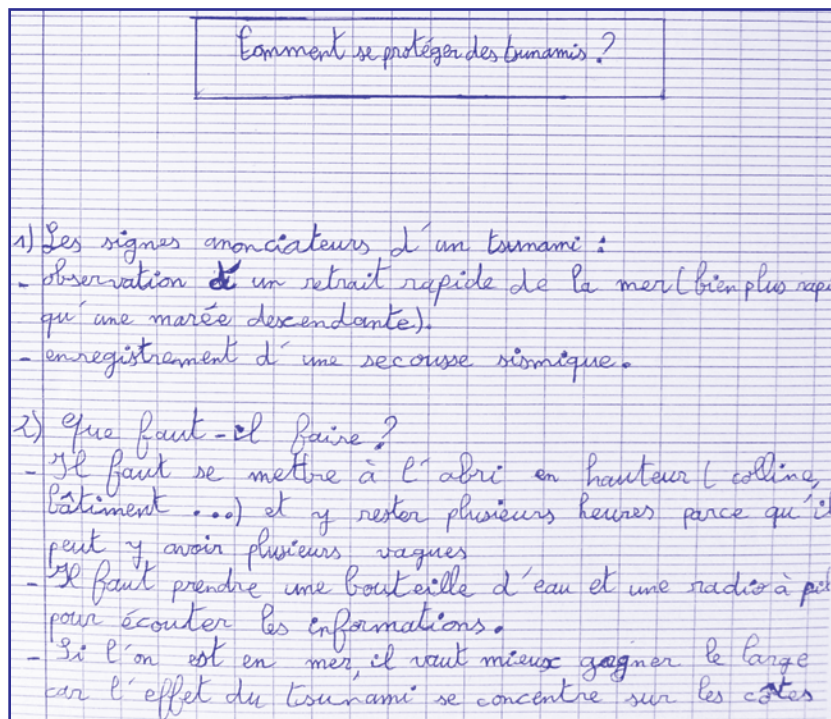 Comment se protéger des tsunamis ?
1) Les signes anonciateurs d'un tsunami :
- observation d'un retrait rapide de la mer (bien plus rapi
qu'une marée descendante).
- enregistrement d'une secousse sismique.
2) Que faut-il faire ?
- Il faut se mettre à l'abri en hauteur (colline,
bâtiment ...) et y rester plusieurs heures parce qu'il
peut y avoir plusieurs vagues
- Il faut prendre une bouteille d'eau et une radio à pil
pour écouter les informations.
- Si l'on est en mer, il vaut mieux gagner le large
car l'effet du tsunami se concentre sur les côtes